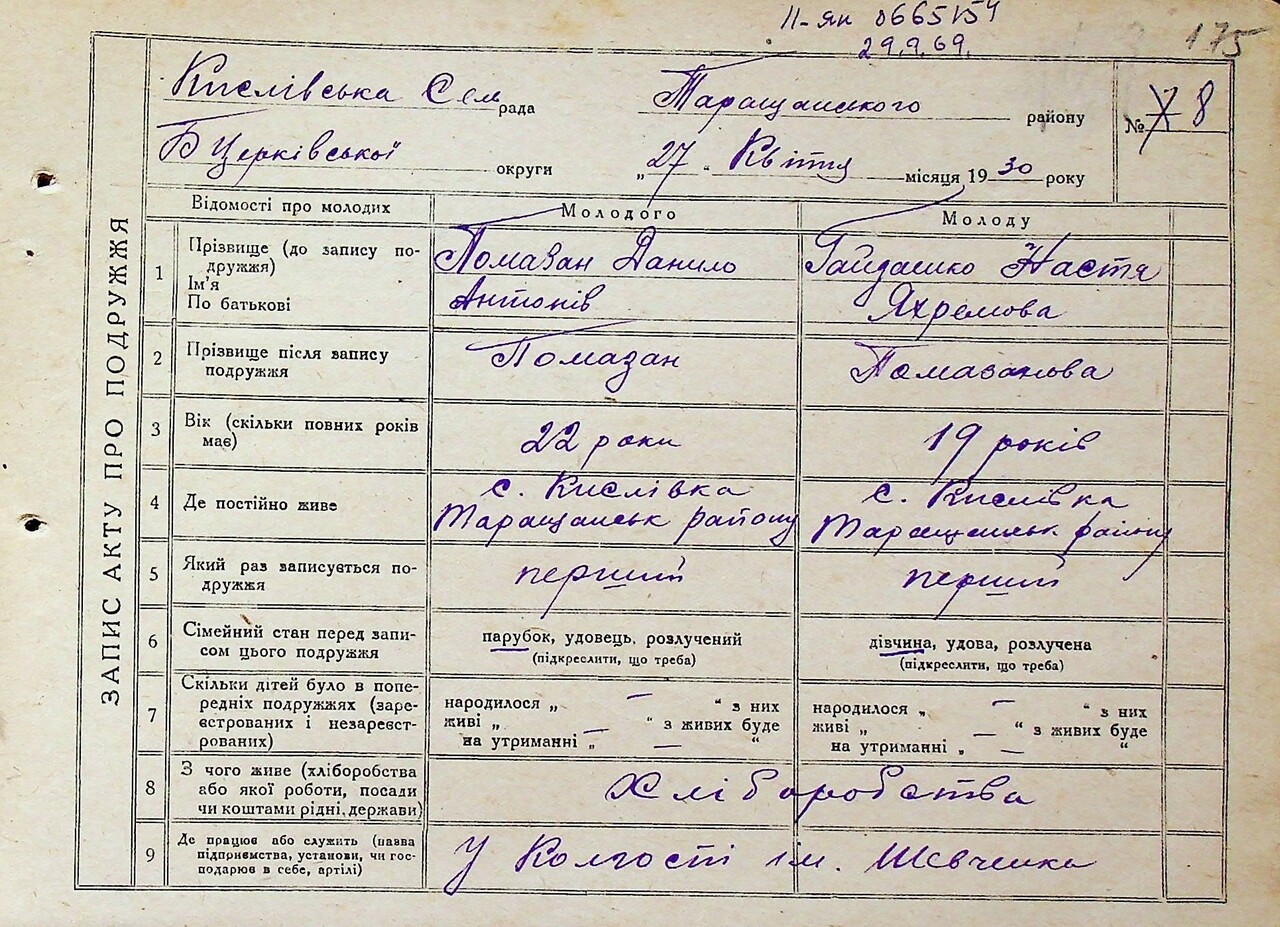 ІІ-ЯК 0665154
29.9.69.
175
Кислівська Сел рада Таращанского району № 8
Б Церківської округи „27" Квітня місяця 1930 року
ЗАПИС АКТУ ПРО ПОДРУЖЖЯ
Відомості про молодих Молодого Молоду
1 Прізвище (до запису по-
дружжя)
Ім'я
По батькові
Помазан Данило
Антонів
Гайдашко Настя
Яхремова
2 Прізвище після запису
подружжя
Помазан
Помазанова
3 Вік (скільки повних років
має)
22 роки
19 років
4 Де постійно живе
с. Кислівка
Таращанськ району
с. Кислівка
Таращанськ району
5 Який раз записується по-
дружжя
перший
перший
6 Сімейний стан перед запи-
сом цього подружжя
парубок, удовець, розлучений
(підкреслити, що треба)
дівчина, удова, розлучена
(підкреслити, що треба)
7 Скільки дітей було в попе-
редніх подружжях (заре-
єстрованих і незареєст-
рованих)
народилося „ — " з них
живі „ — " з живих буде
на утриманні „ — "
народилося „ — " з них
живі „ — " з живих буде
на утриманні „ — "
8 З чого живе (хліборобства
або якої роботи, посади
чи коштами рідні, держави)
Хліборобства
9 Де працює або служить (назва
підприємства, установи, чи гос-
подарює в себе, артілі)
У Колгості ім. Шевченка